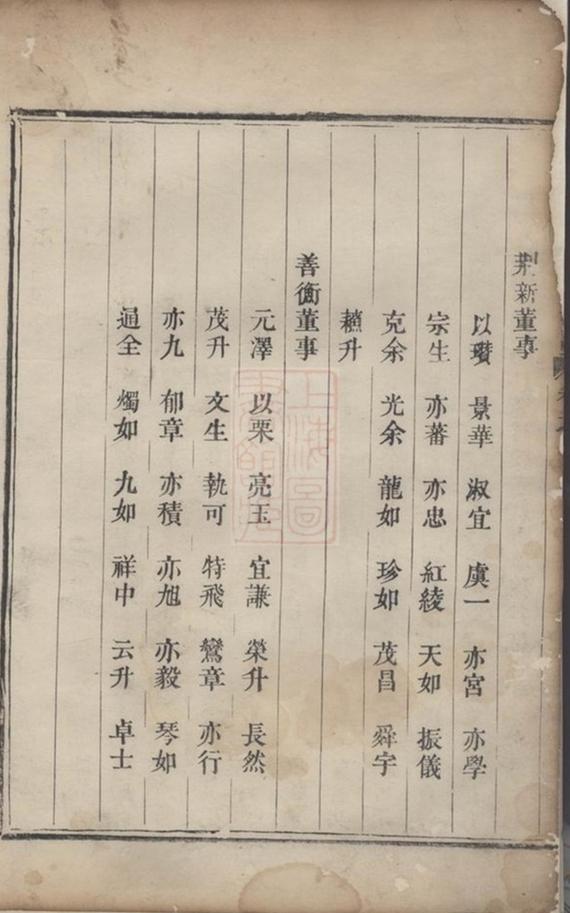 荆新董事
以瓚 景華 淑宜 虞一 亦宮 亦學
宗生 亦蕃 亦忠 紅綾 天如 振儀
克余 光余 龍如 珍如 茂昌 舜宇
升
善衡董事
元澤 以栗 亮玉 宜謙 榮升 長然
茂升 文生 執可 特飛 鸞章 亦行
亦九 郁章 亦積 亦旭 亦毅 琴如
通全 燭如 九如 祥中 云升 卓士
上海圖